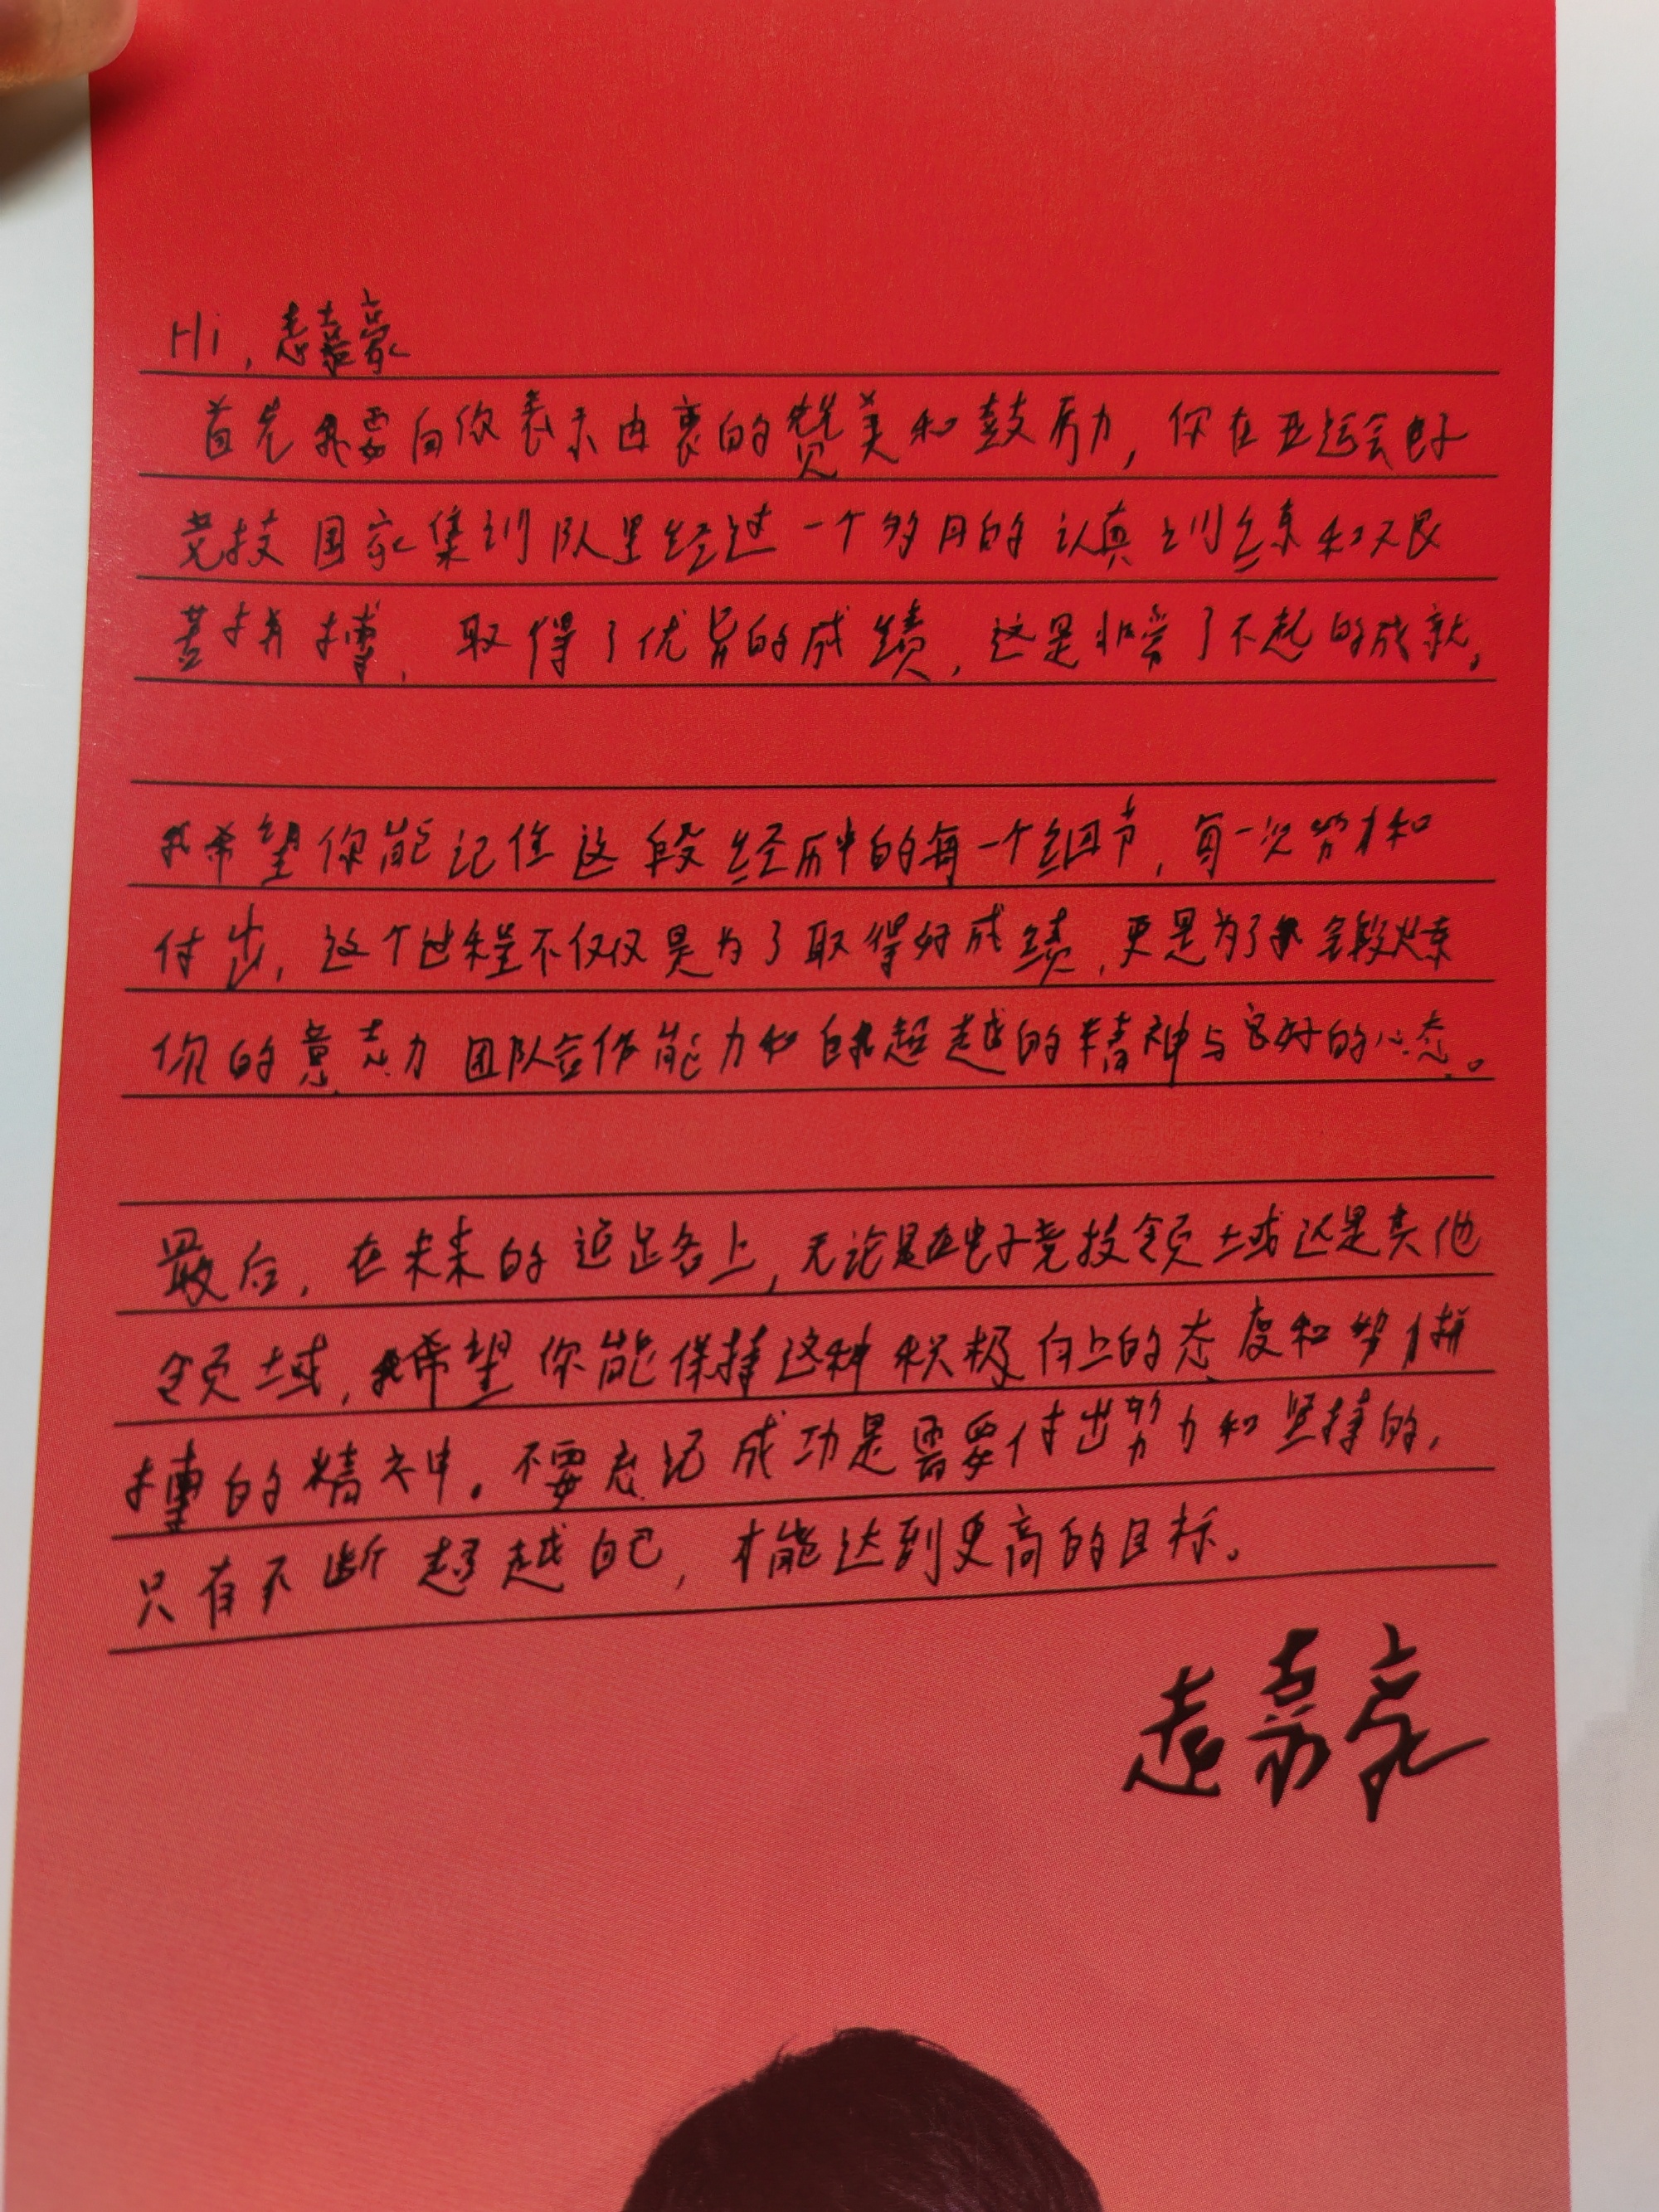 Hi，赵嘉豪
首先我要向你表示由衷的赞美和鼓励，你在亚运会电子
竞技国家集训队里经过一个多月的认真训练和艰
苦拼搏，取得了优异的成绩，这是非常了不起的成就。
我希望你能记住这段经历中的每一个细节，每一次努力和
付出，这个过程不仅仅是为了取得好成绩，更是为了锻炼
你的意志力 团队合作能力和自我超越的精神与良好的心态。
最后，在未来的道路上，无论是在电子竞技领域还是其他
领域，我希望你能保持这种积极向上的态度和努力拼
搏的精神。不要忘记成功是需要付出努力和坚持的，
只有不断超越自己，才能达到更高的目标。
赵嘉豪